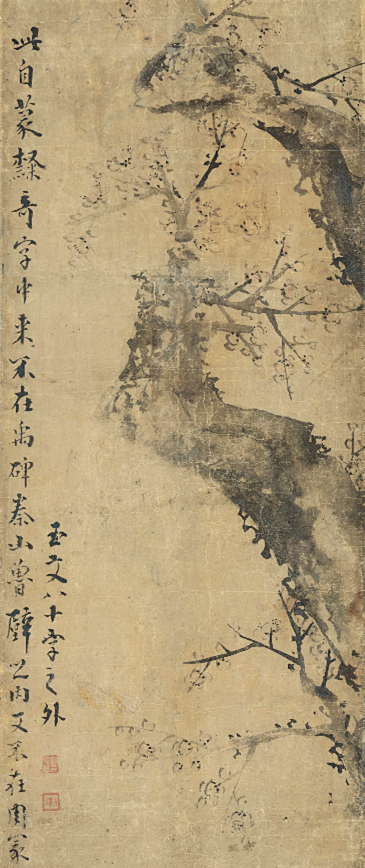 此自篆隸奇字中来不在禹碑秦山魯壁之内又不在周冢
玉文八十字之外